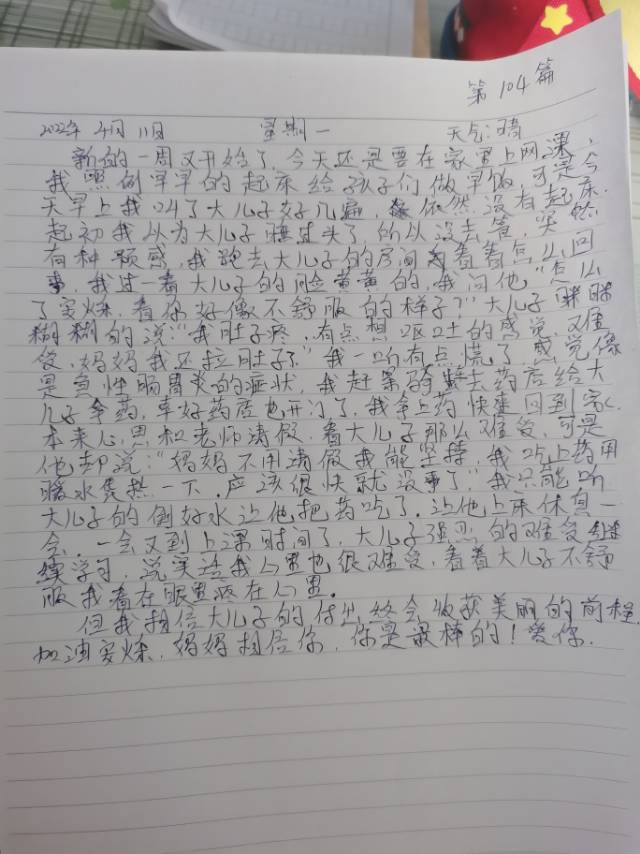 第104篇
2022年4月11日 星期一 天气:晴
新的一周又开始了,今天还是要在家里上网课,
我照例早早的起床给孩子们做早饭,可是今
天早上我叫了大儿子好几遍,依然没有起床.
起初我以为大儿子睡过头了所以没去管,突然
有种预感,我跑去大儿子的房间看看怎么回
事,我过一看大儿子的脸黄黄的,我问他"怎么
了安烁,看你好像不舒服的样子?"大儿子眯眯
糊糊的说:"我肚子疼,有点想呕吐的感觉,难
受,妈妈我还拉肚子了"我一听有点慌了,感觉像
是急性肠胃炎的症状,我赶紧骑去药店给大
儿子拿药,幸好药店也开门了,我拿上药快速回到家.
本来心思和老师请假,看大儿子那么难受,可是
他却说:"妈妈不用请假我能坚持,我吃上药用
暖水煲热一下,应该很快就没事了"我只能听
大儿子的倒好水让他把药吃了,让他上床休息一
会,一会又到上课时间了,大儿子强忍的难受继
续学习,说实话我心里也很难受,看着大儿子不舒
服我看在眼里疼在心里.
但我相信大儿子的付出终会收获美丽的前程.
加油安烁,妈妈相信你,你是最棒的!爱你.